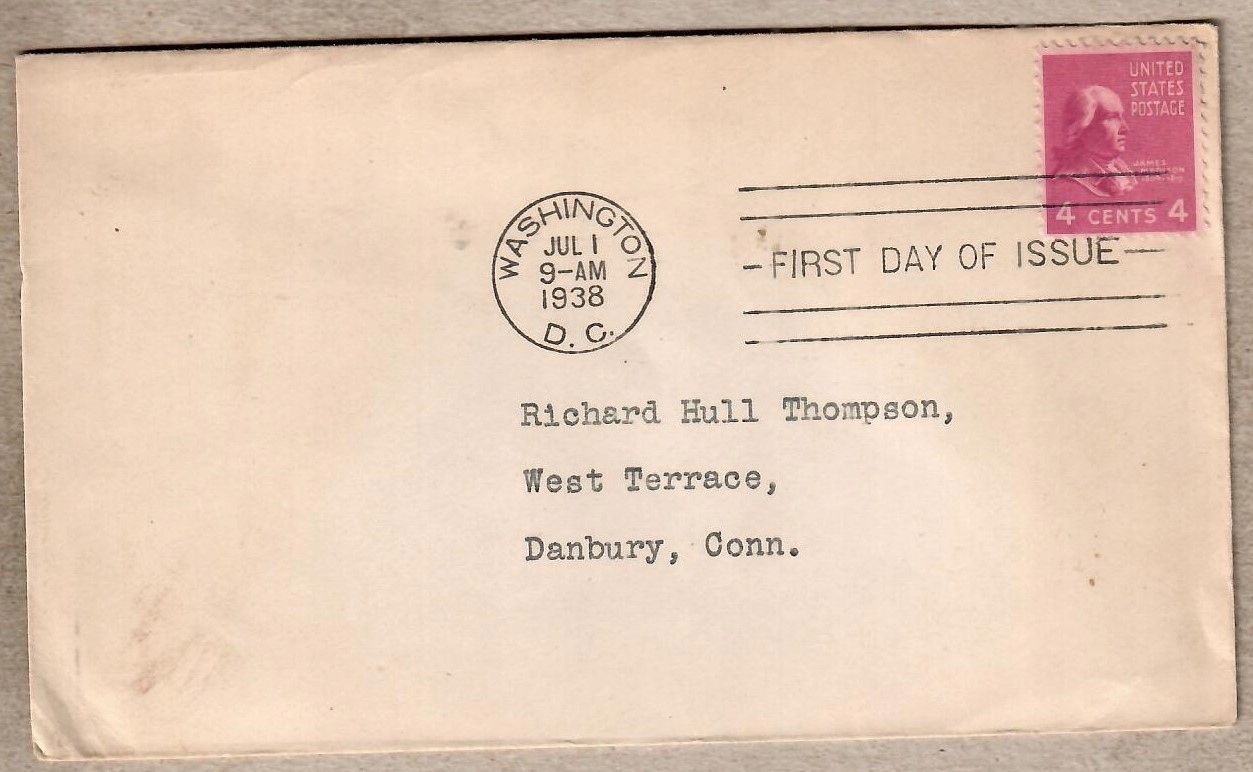 UNITED
STATES
POSTAGE
JAMES
MADISON
4 CENTS 4
WASHINGTON
JUL 1
9-AM
1938
D. C.
-FIRST DAY OF ISSUE-
Richard Hull Thompson,
West Terrace,
Danbury, Conn.